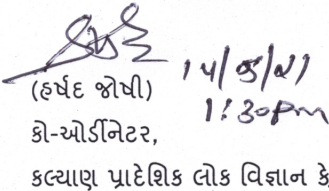 (હર્ષદ જોષી)
1:30pm
કો-ઓર્ડીનેટર,
કલ્યાણ પ્રાદેશિક લોક વિજ્ઞાન કે